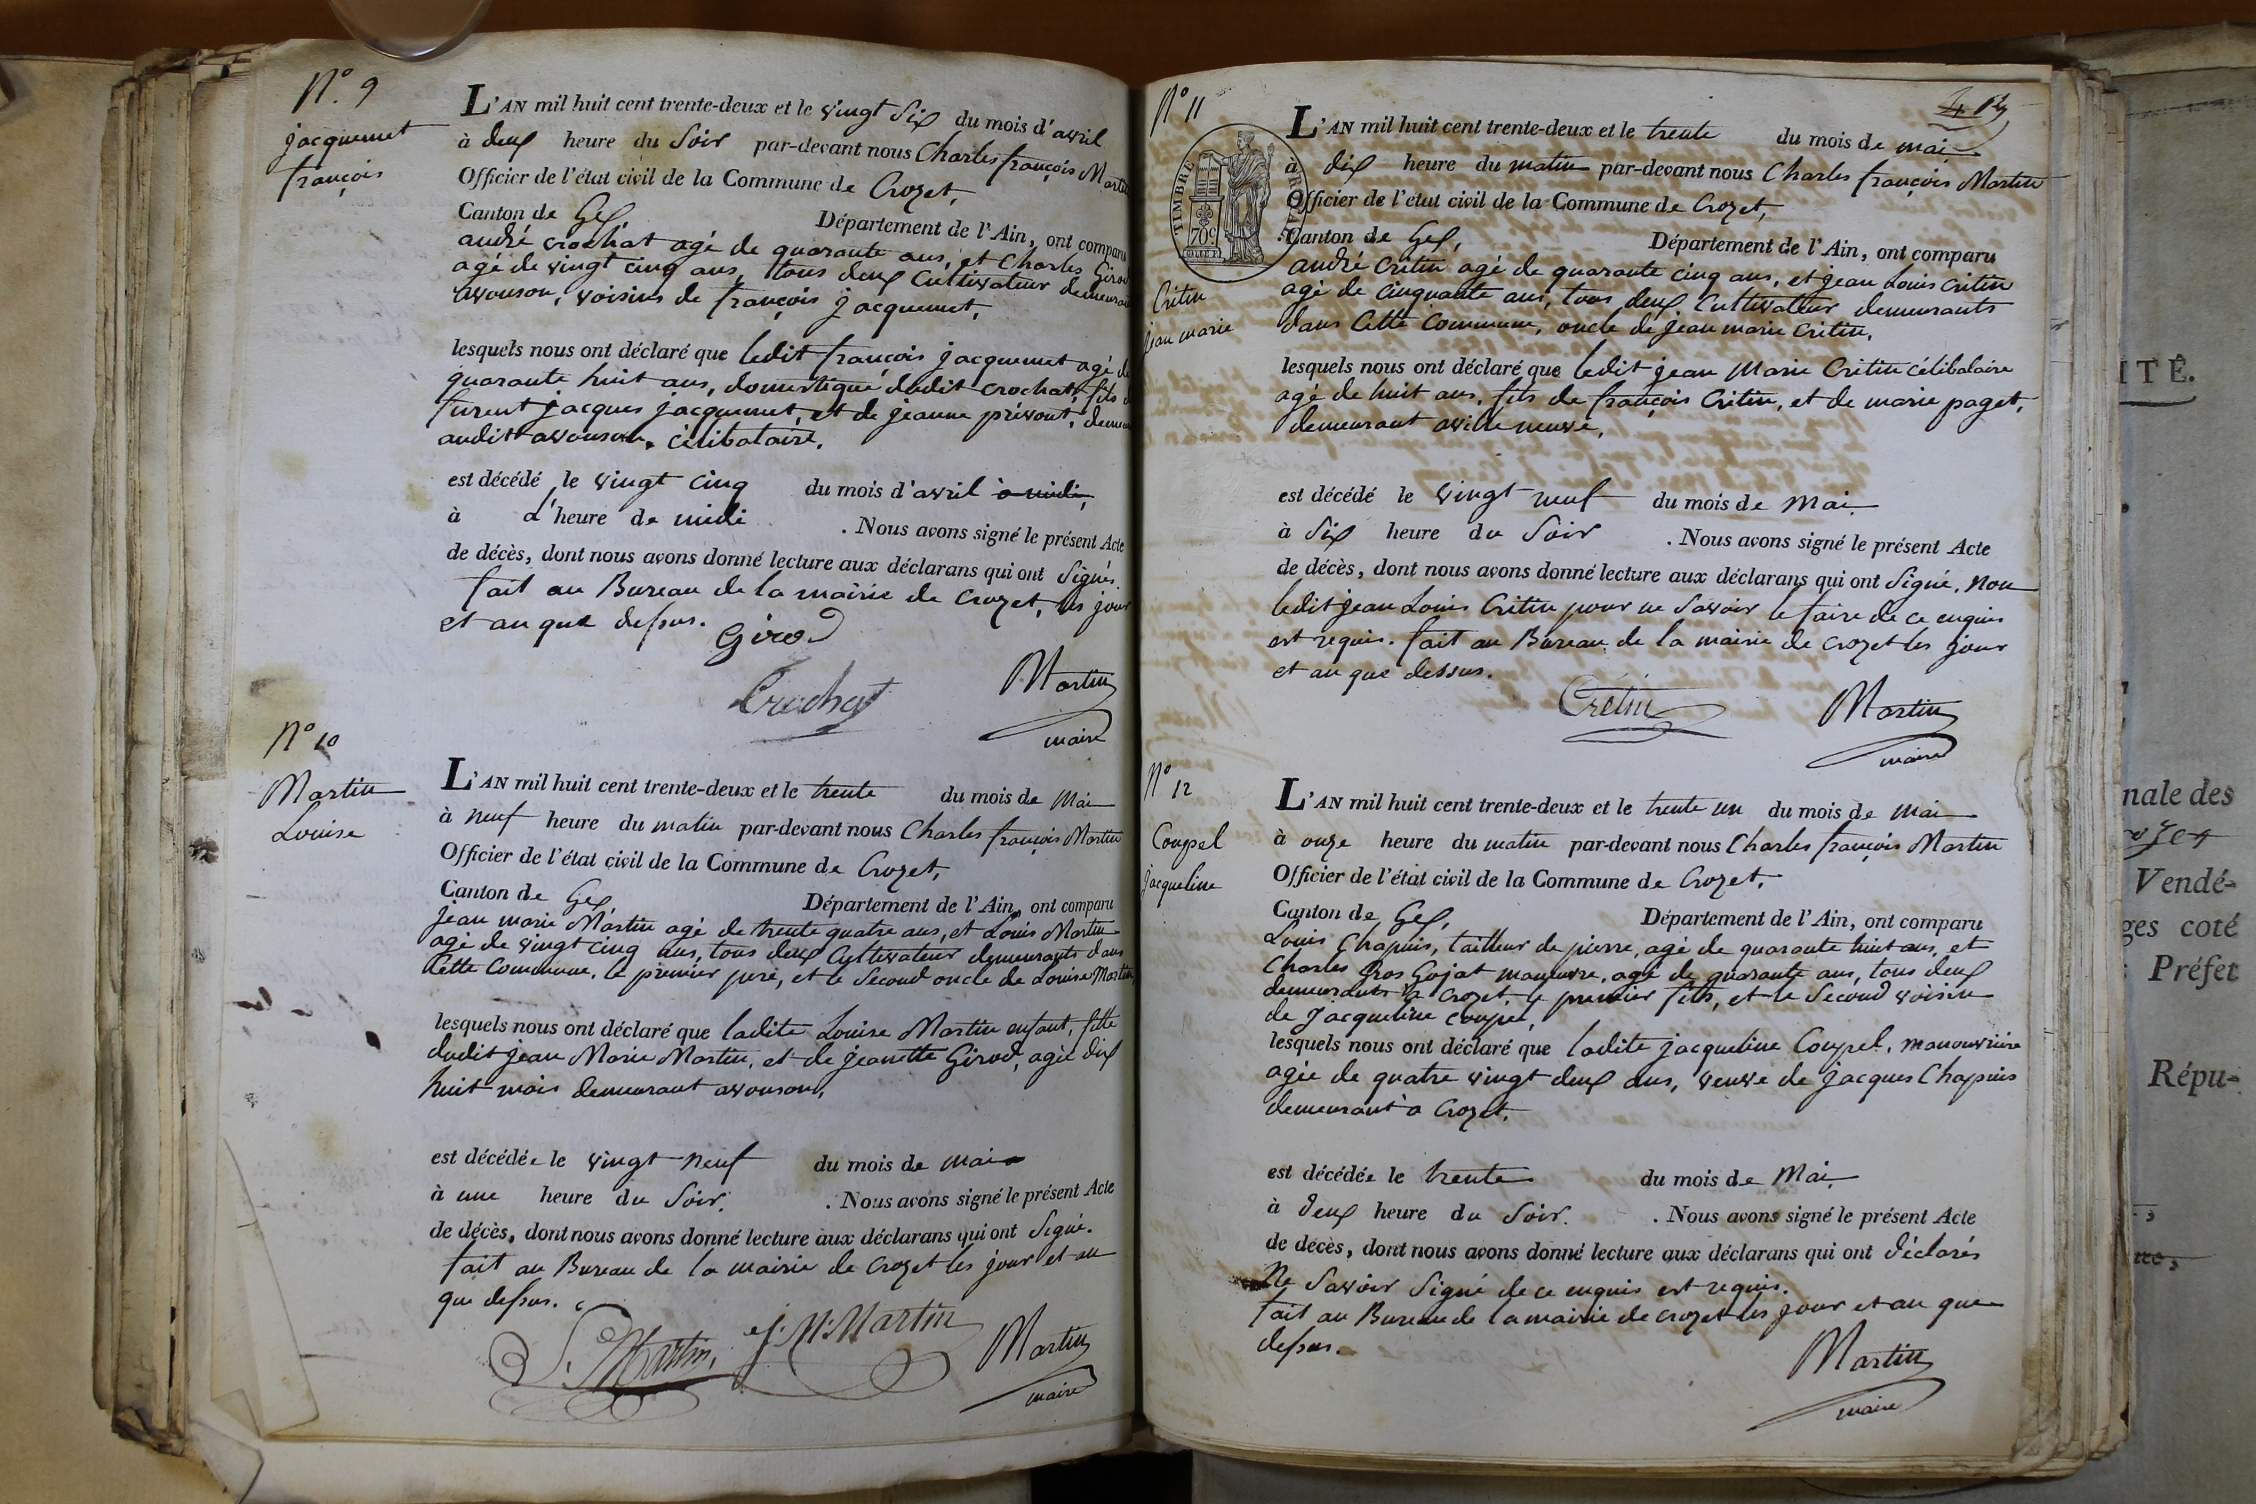 N.º 9
jacquemet
françois
L'AN mil huit cent trente-deux et le vingt six du mois d'avril
à deux heure du Soir par-devant nous Charles françois Martin
Officier de l'état civil de la Commune de Crozet,
Canton de Gex, Département de l'Ain, ont comparu
andré crochat agé de quarante ans, et Charles Girod
agé de vingt cinq ans, tous deux Cultivateur demeurant
avouson, voisins de françois jacquemet,
lesquels nous ont déclaré que ledit françois jacquemet agé de
quarante huit ans, domestique dudit crochat, fils
furent jacques jacquemet, et de jeanne prévout,
audit avouson. célibataire.
est décédé le vingt cinq du mois d'avril à midi,
à d'heure de midi . Nous avons signé le présent Acte
de décès, dont nous avons donné lecture aux déclarans qui ont Signés.
fait au Bureau de la mairie de Crozet, les jour
et an que dessus.
Girod
Crochat
Martin
maire
N.º 10
Martin
Louise
L'AN mil huit cent trente-deux et le trente du mois de Mai
à neuf heure du matin par-devant nous Charles françois Martin
Officier de l'état civil de la Commune de Crozet,
Canton de Gex Département de l'Ain, ont comparu
jean marie Martin agé de trente quatre ans, et Louis Martin
agé de vingt cinq ans, tous deux Cultivateur demeurants dans
Cette Commune, le premier père, et le Second oncle de Louise Martin,
lesquels nous ont déclaré que ladite Louise Martin enfant, fille
dudit jean Marie Martin, et de jeanette Girod, agée dix
huit mois demeurant avouson,
est décédée le vingt neuf du mois de mai
à une heure du Soir. . Nous avons signé le présent Acte
de décès, dont nous avons donné lecture aux déclarans qui ont Signé.
fait au Bureau de la mairie de Crozet les jour et an
que dessus.
Martin,
J. M. Martin
Martin
maire
N.º 11
TIMBRE ROYAL
70c
Crétin
jean marie
L'AN mil huit cent trente-deux et le trente du mois de mai
à dix heure du matin par-devant nous Charles françois Martin
Officier de l'état civil de la Commune de Crozet,
Canton de Gex, Département de l'Ain, ont comparu
andré Crétin agé de quarante cinq ans, et jean Louis Crétin
agé de cinquante ans, tous deux Cultivateur demeurants
dans Cette Commune, oncle de jean marie Crétin,
lesquels nous ont déclaré que ledit jean Marie Crétin célibataire
agé de huit ans, fils de françois Crétin, et de marie paget,
demeurant aville neuve,
est décédé le vingt neuf du mois de Mai
à Six heure du Soir . Nous avons signé le présent Acte
de décès, dont nous avons donné lecture aux déclarans qui ont Signé, Non
ledit jean Louis Crétin pour ne Savoir le faire de ce enquis
est requis. fait au Bureau de la mairie de Crozet les jour
et an que dessus.
Crétin
Martin
maire
N.º 12
Coupel
Jacqueline
L'AN mil huit cent trente-deux et le trente un du mois de Mai
à onze heure du matin par-devant nous Charles françois Martin
Officier de l'état civil de la Commune de Crozet,
Canton de Gex, Département de l'Ain, ont comparu
Louis Chapuis, tailleur de pierre, agé de quarante huit ans, et
Charles Gros Gojat manœuvre, agé de quarante ans, tous deux
demeurants à Crozet, le premier fils, et le Second voisin
de Jacqueline Coupel,
lesquels nous ont déclaré que ladite jacqueline Coupel, manouvrière
agée de quatre vingt deux ans, veuve de Jacques Chapuis
demeurant à Crozet,
est décédée le trente du mois de Mai
à deux heure du Soir. . Nous avons signé le présent Acte
de décès, dont nous avons donné lecture aux déclarans qui ont déclarés
Ne Savoir Signé de ce enquis est requis.
fait au Bureau de la mairie de Crozet les jour et an que
dessus.
Martin
maire
ITÉ.
nale des
Vendé-
ges coté
Préfet
Répu-